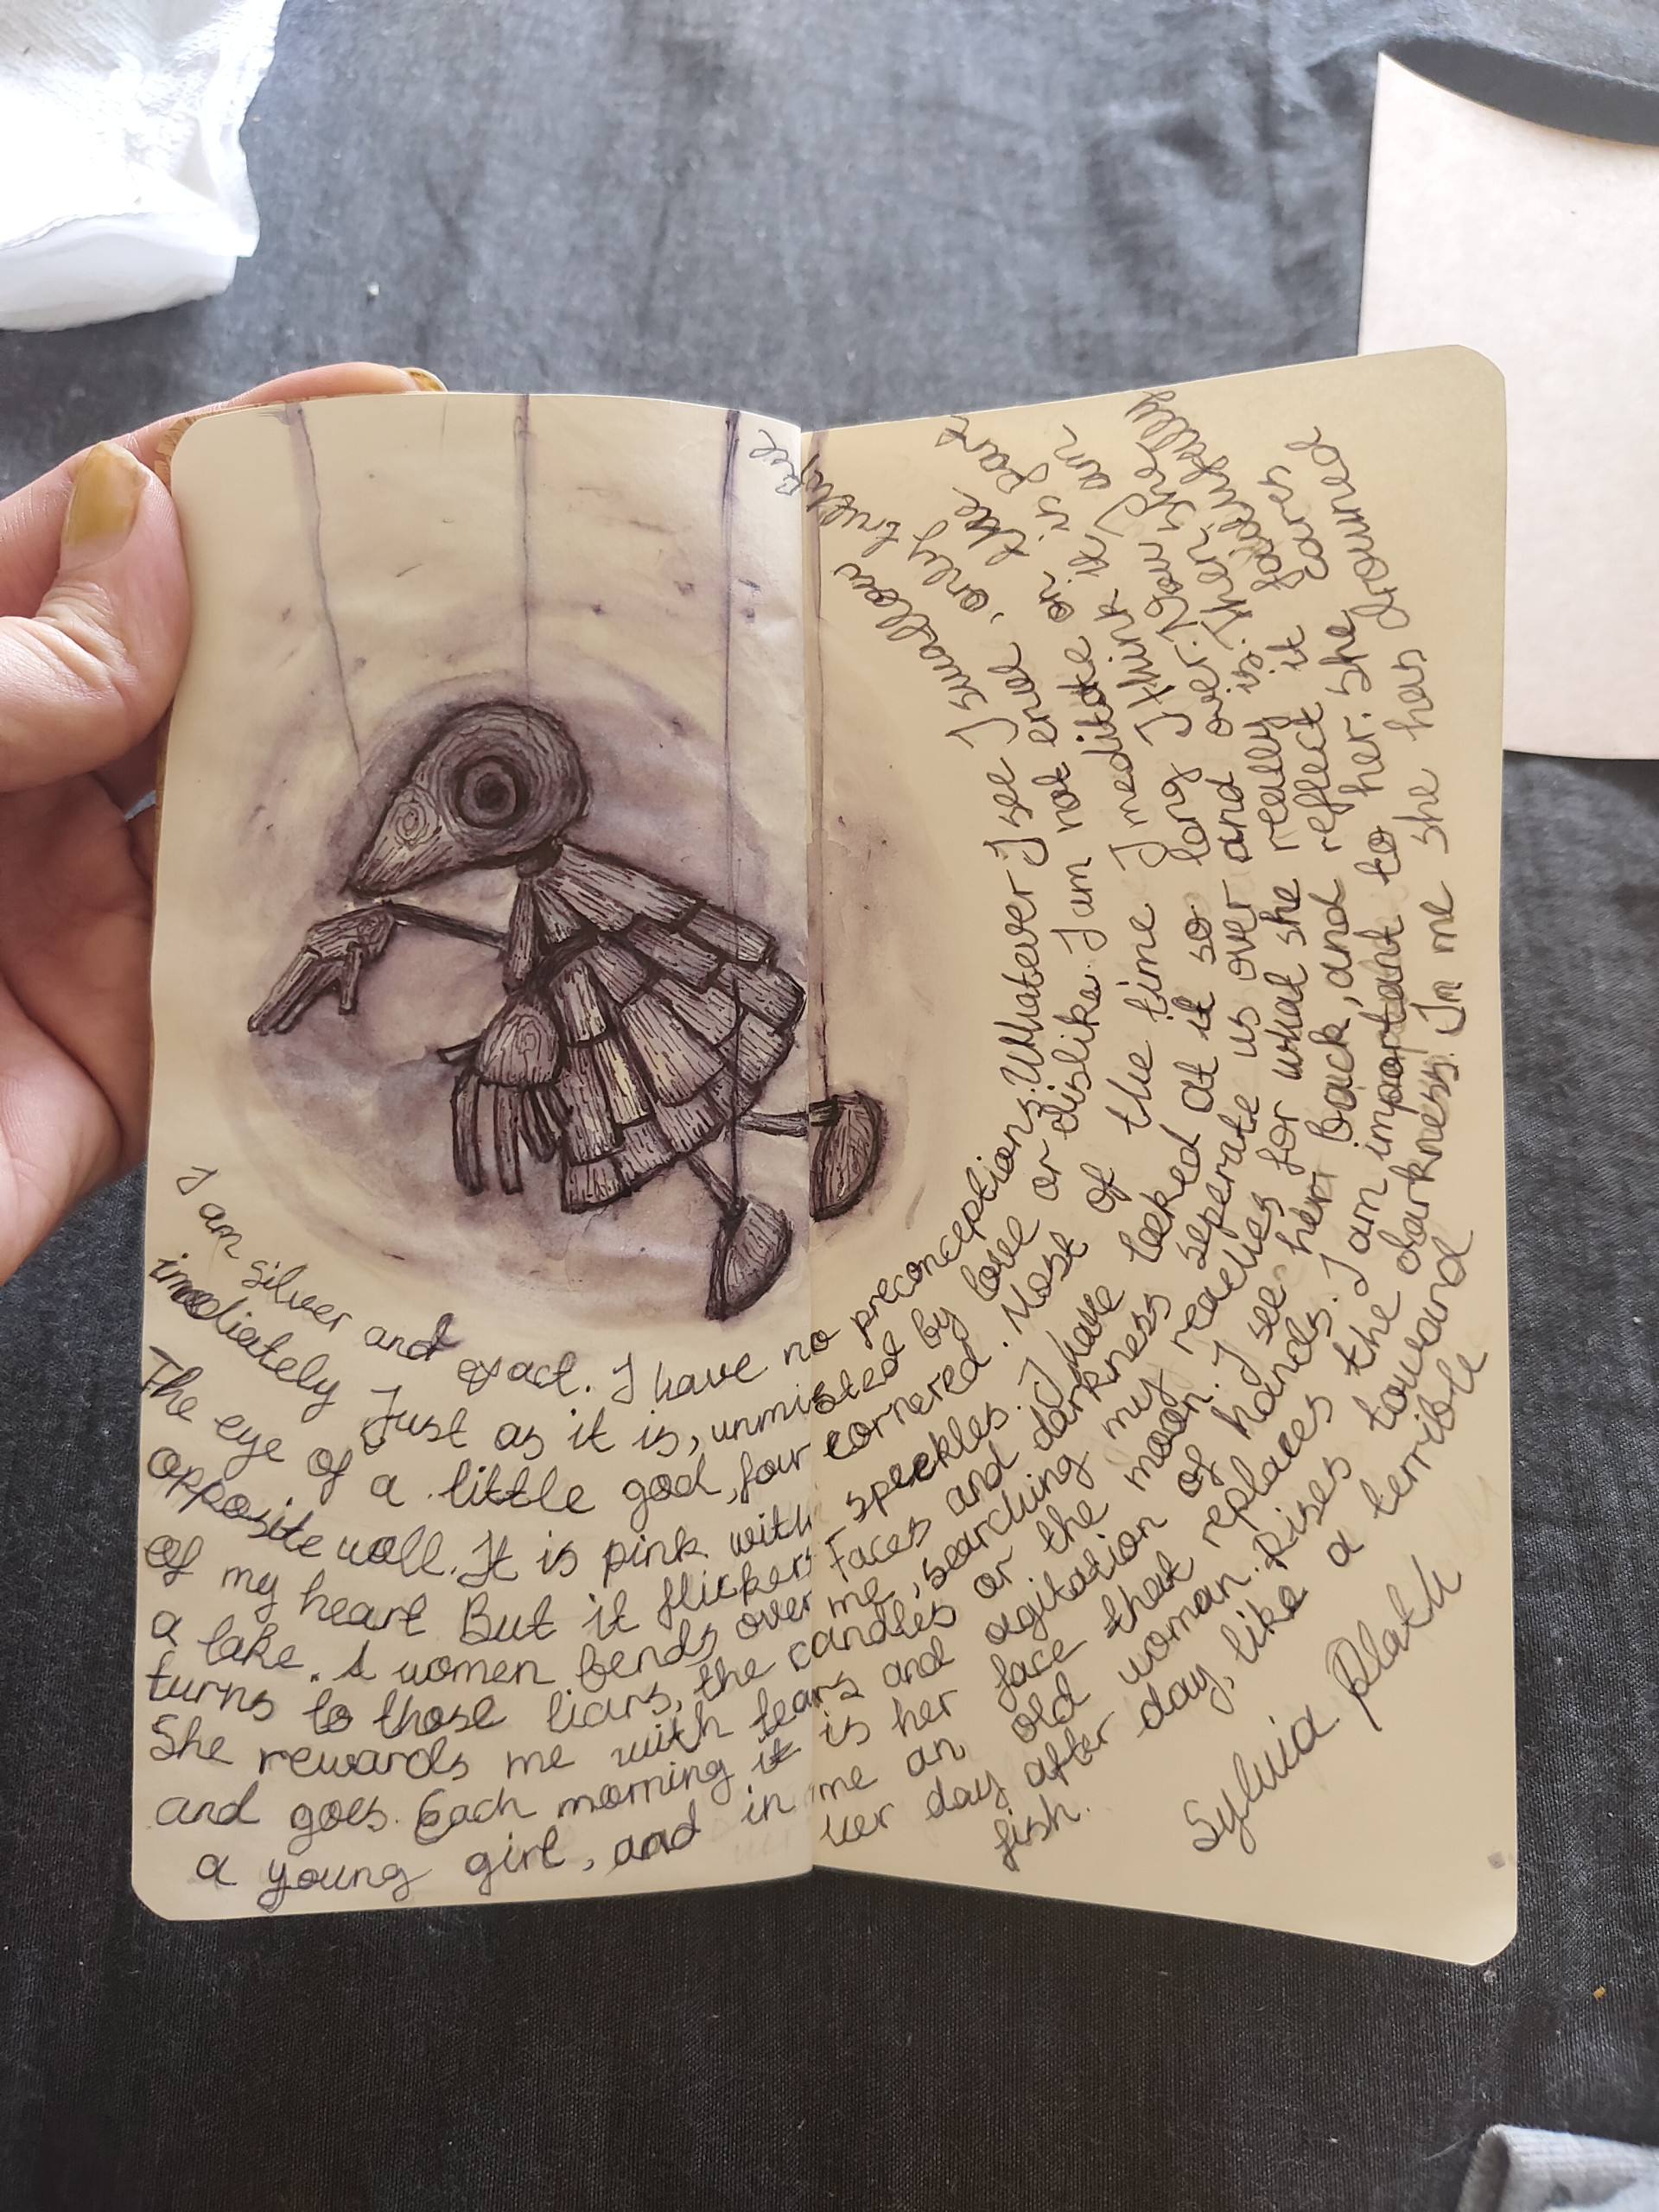 I am silver and exact. I have no preconceptions. Whatever I see I swallow
imediately Just as it is, unmisted by love or dislike. I am not cruel, only truthful
The eye of a little god, four cornered. Most of the time I meditate on the
opposite wall. It is pink with speckles. I have looked at it so long I think it is part
of my heart But it flickers Faces and darkness seperate us over and over. Now I am
a lake. A women bends over me, searching my reaches for what she really is. Then she
turns to those liars, the candles or the moon. I see her back, and reflect it faithfully
She rewards me with tears and agitation of hands. I am important to her. she comes
and goes. Each morning it is her face that replaces the darkness. In me she has drowned
a young girl, and in me an old woman. Rises toward
her day after day, like a terrible
fish.
Sylvia Plath